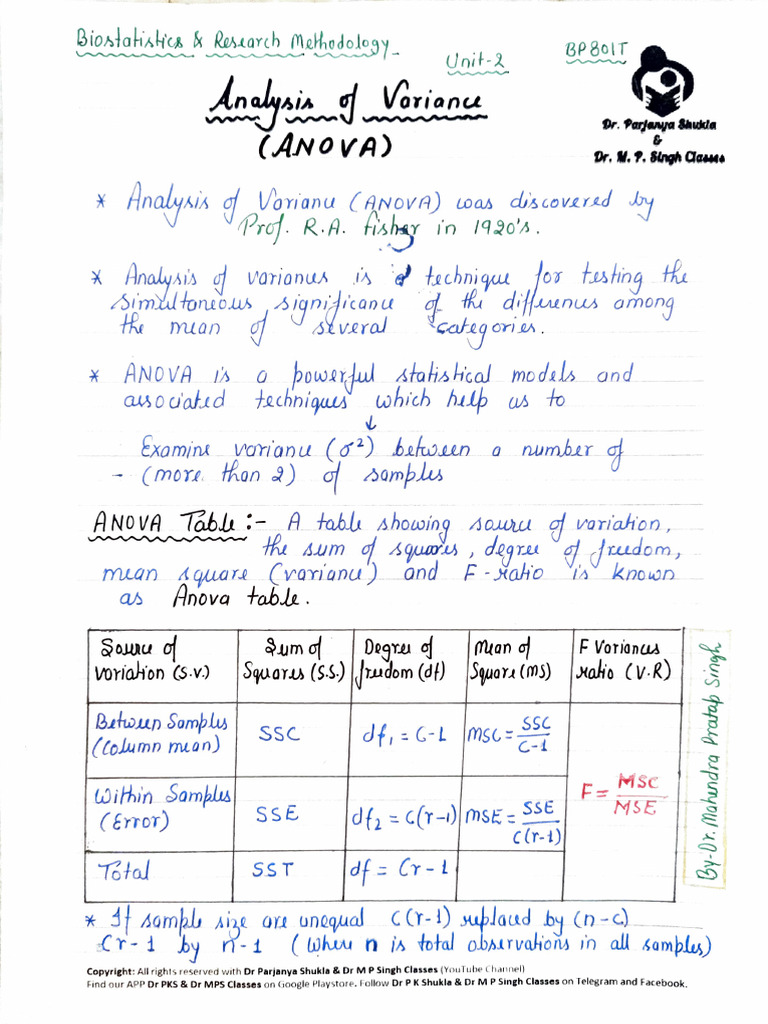 Biostatistics & Research Methodology
Unit-2
BP801T
Analysis of Variance
(ANOVA)
Dr. Parjanya Shukla
&
Dr. M. P. Singh Classes
* Analysis of Variance (ANOVA) was discovered by
Prof. R.A. fisher in 1920's.
* Analysis of variances is a technique for testing the
simultaneous significance of the differences among
the mean of several categories.
* ANOVA is a powerful statistical models and
associated techniques which help us to
↓
Examine variance (σ²) between a number of
- (more than 2) of samples
ANOVA Table :- A table showing source of variation,
the sum of squares, degree of freedom,
mean square (variance) and F-ratio is known
as Anova table.
Source of variation (S.V.) | Sum of Squares (S.S.) | Degree of freedom (df) | Mean of Square (MS) | F Variances ratio (V.R)
Between Samples (Column mean) | SSC | df₁ = C-1 | MSC = SSC/C-1 | F = MSC/MSE
Within Samples (Error) | SSE | df₂ = C(r-1) | MSE = SSE/C(r-1)
Total | SST | df = Cr-1
By-Dr. Mahendra Pratap Singh
* If sample size are unequal C(r-1) replaced by (n-c)
Cr-1 by n-1 (where n is total observations in all samples)
Copyright: All rights reserved with Dr Parjanya Shukla & Dr M P Singh Classes (YouTube Channel)
Find our APP Dr PKS & Dr MPS Classes on Google Playstore. Follow Dr P K Shukla & Dr M P Singh Classes on Telegram and Facebook.